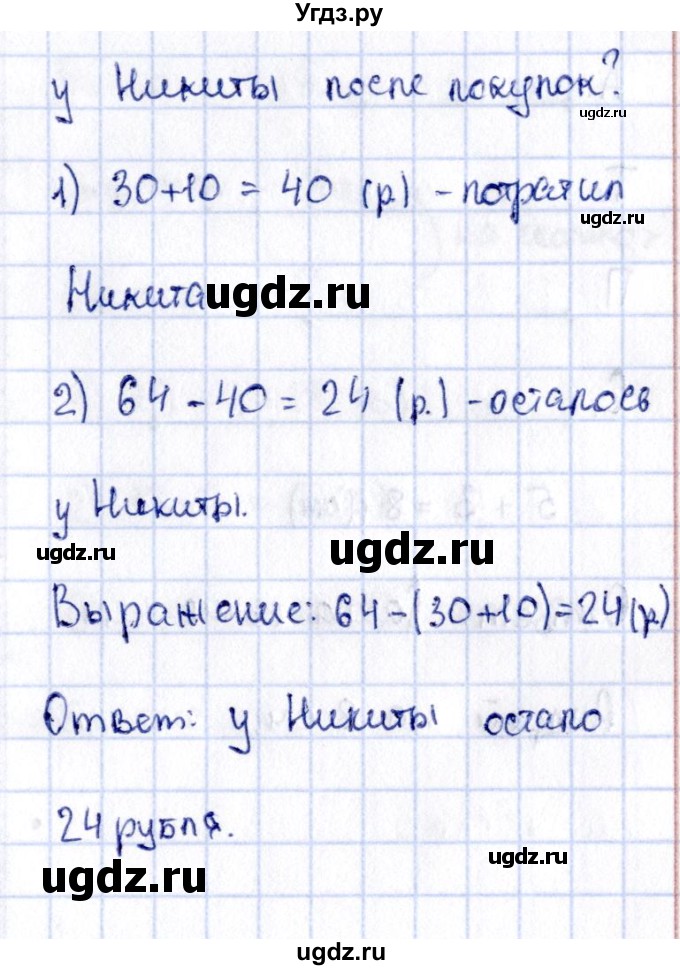 Угдз.ру
у Никиты после покупок?
ugdz.ru
1) 30+10 = 40 (р.) - потратил
ugdz.ru
Никита
ugdz.ru
2) 64 - 40 = 24 (р.) - осталось
у Никиты.
ugdz.ru
ugdz.ru
Выражение: 64-(30+10)=24(р.)
Ответ: у Никиты остало
24 рубля.
ugdz.ru
ugdz.ru
ugdz.ru